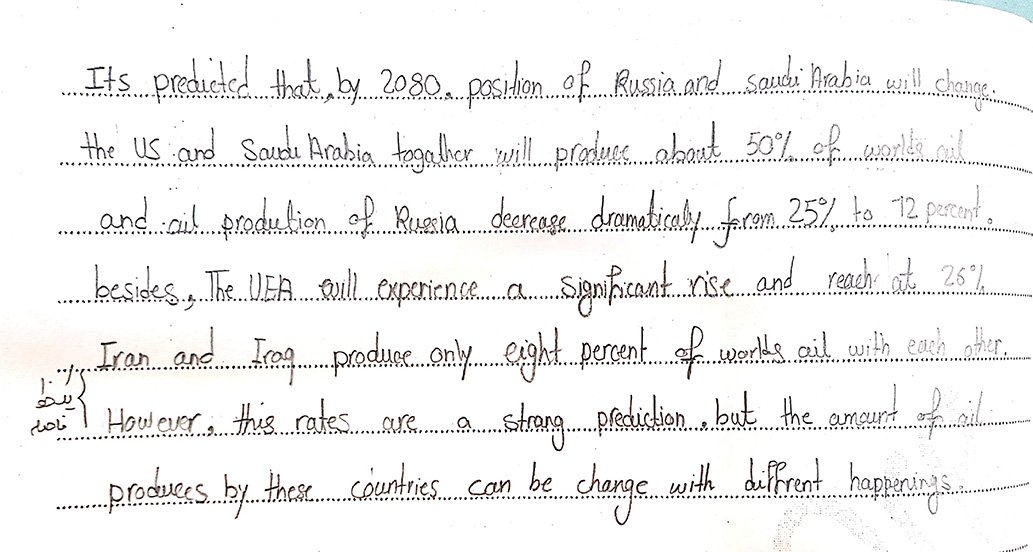 Its predicted that, by 2080. position of Russia and saudi Arabia will change.
the US and Saudi Arabia togather will produce about 50% of worlds oil
and oil prodution of Russia decrease dramaticaly from 25% to 12 percent.
besides, The UEA will experience a significant rise and reach at 26%
Iran and Iraq produce only eight percent of worlds oil with each other.
However, this rates are a strang prediction, but the amount of oil
produces by these countries can be change with diffrent happenings.